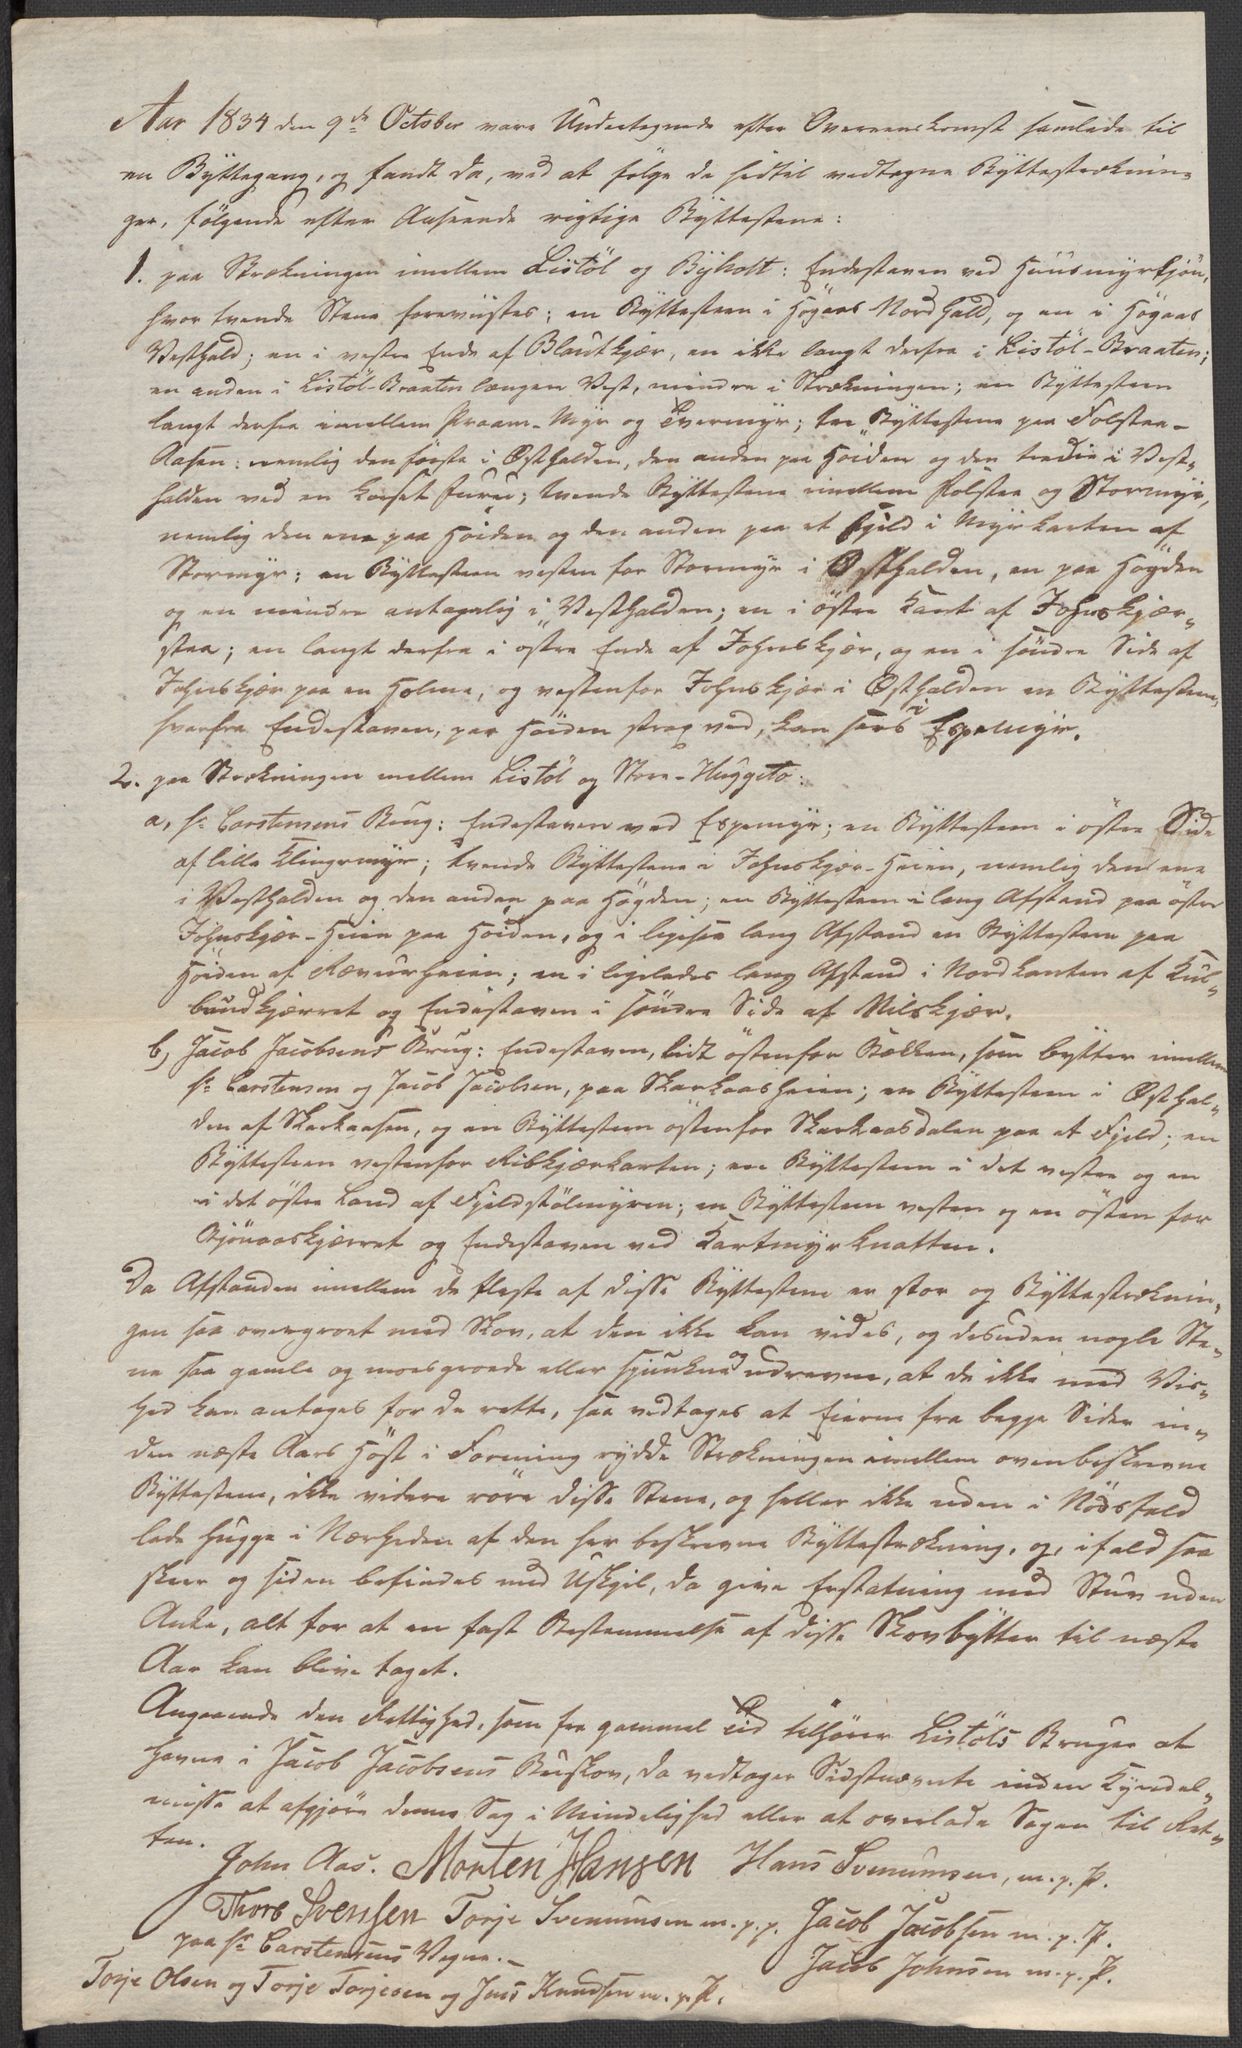 Aar 1834 den 9de October vare Undertegnede efter Overeenskomst samlede til
en Byttegang, og fandt da, ved at følge de hidtil vedtagne Byttestræknin-
ger, følgende efter Anseende rigtige Byttestene:
1. paa Strækningen imellem Listöl og Byholt: Endestaven ved Huusmyrtjön,
hvor tvende Stene foreviistes; en Byttesteen i Högaas Nordhald, og en i Högaas
Vesthald; en i vestre Ende af Blautkjær, en ikke langt derfra i Listöl-Braaten;
en anden i Listöl-Braaten længere Vest, mindre i Strækningen; en Byttesteen
langt derfra imellem Praam-Myr og Tvermyr; tre Byttestene paa Folstea-
Aasen: nemlig den første i Østhalden, den anden paa Höiden og den tredie i Vest-
halden ved en korset Furu; tvende Byttestene imellem Folstea og Stormyr,
nemlig den ene paa Höiden og den anden paa et Fjeld i Myrkanten af
Stormyr; en Byttesteen vesten for Stormyr i Østhalden, en paa Högden
og en mindre antagelig i Vesthalden; en i östre Kant af Johnskjær-
stea; en langt derfra i østre Ende af Johnskjær, og en i söndre Side af
Johnskjær paa en Holme, og vestenfor Johnskjær i Østhalden en Byttesteen,
hvorfra Endestaven, paa Höiden strax ved, kan sees i Espemyr.
2. paa Strækningen mellem Listöl og Store-Huggeto:
a, Hr Carstensens Brug: Endestaven ved Espemyr; en Byttesteen i östre Side
af lille Klingrmyr; tvende Byttestene i Johnskjær-Heien, nemlig den ene
i Vesthalden og den anden paa Högden; en Byttesteen i lang Afstand paa östre
Johnskjær-Heien paa Höiden, og i ligesaa lang Afstand en Byttesteen paa
Höiden af Rævurheien; en i ligeledes lang Afstand i Nordkanten af Kul-
bundkjærret og Endestaven i söndre Side af Nilskjær.
b, Jacob Jacobsens Brug: Endestaven, lidt östenfor Bækken, som bytter imellem
Hr Carstensen og Jacob Jacobsen, paa Skarkaasheien; en Byttesteen i Østhal-
den af Skarkaasen, og en Byttesteen östenfor Skarkaasdalen paa et Fjeld; en
Byttesteen vestenfor Ribkjærkarten; en Byttesteen i det vestre og en
i det östre Land af Fjeldstölmyren; en Byttesteen vesten og en östen for
Bjönaaskjærret og Endestaven ved Tartmyrknatten.
Da Afstanden imellem de fleste af disse Byttestene er stor og Byttestræknin-
gen saa overgroet med Skov, at den ikke kan vides, og desuden nogle Ste-
ne saa gamle og moesgroede eller sjunkne og udrevne, at de ikke med Vis-
hed kan antages for de rette, saa vedtages at Eierne fra begge Sider in-
den næste Aars Höst i Forening rydde Strækningen imellem ovenbeskrevne
Byttestene, ikke videre röre disse Stene, og heller ikke uden i Nödsfald
lade hugge i Nærheden af den her beskrevne Byttestrækning, og, ifald saa
skeer og siden befindes med Uskjel, da give Erstatning med Stuv uden
Anke, alt for at en fast Bestemmelse af disse Skovbytter til næste
Aar kan blive taget.
Angaaende den Rettighed, som fra gammel Tid tilhörer Listöls Bruger at
havne i Jacob Jacobsens Buskov, da vedtager Sidstnævnte inden Kyndel-
misse at afgjøre denne Sag i Mindelighed eller at overlade Sagen til Ret-
ten.
John Aas. Morten Hansen Hans Svenumsen, m. p. P.
Thore Svensen Torje Svenumsen m. p. p. Jacob Jacobsen m. p. P.
paa Hr Carstensens Vegne. Jacob Johnsen m. p. P.
Torje Olsen og Torje Torjesen og Jens Knudsen m. p. P.